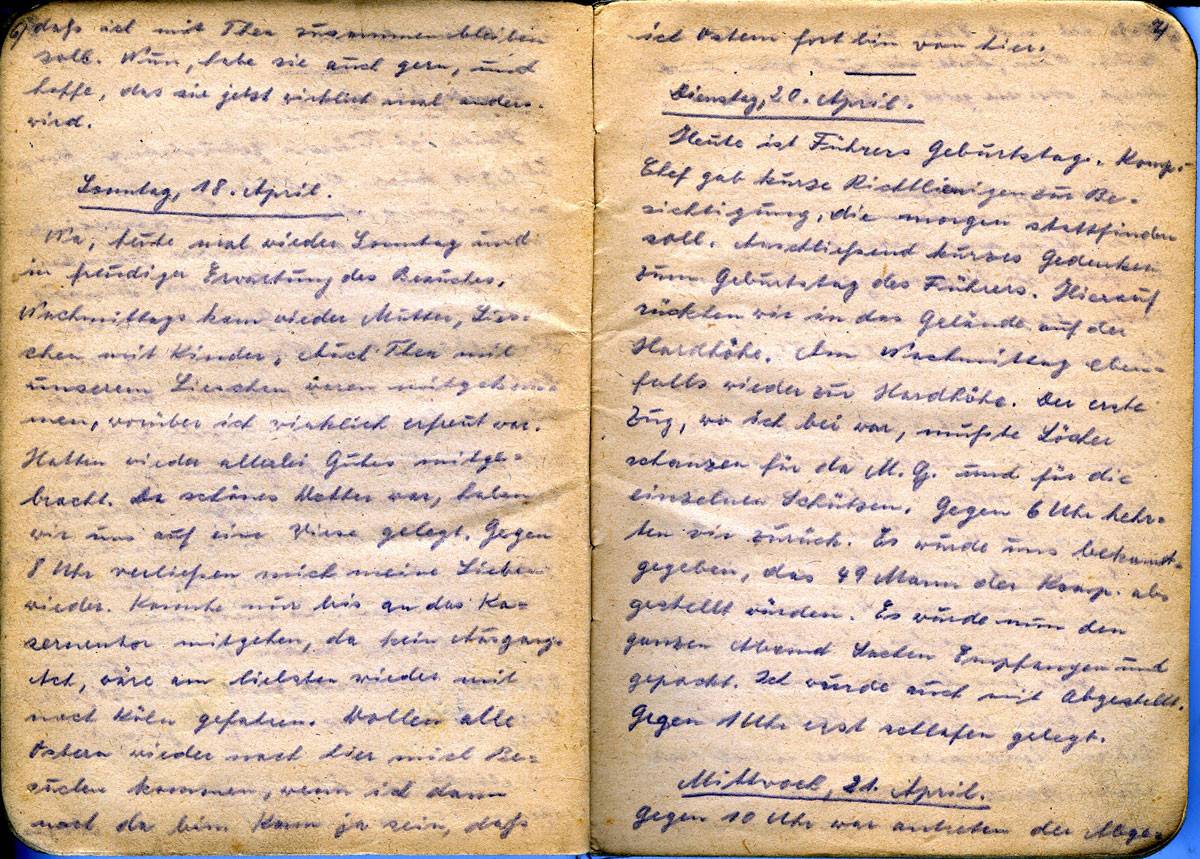 6) daß ich mit Thea zusammenbleiben
soll. Nun, habe sie auch gern, und
hoffe, das sie jetzt wirklich mal anders
wird.
Sonntag, 18. April.
Na, heute mal wieder Sonntag und
in freudiger Erwartung des Besuches.
Nachmittags kam wieder Mutter, Lies-
chen mit Kinder, Auch Thea mit
unserem Lieschen waren mitgekom-
men, worüber ich wirklich erfreut war.
Hatten wieder allerlei Gutes mitge-
bracht. Da schönes Wetter war, haben
wir uns auf eine Wiese gelegt. Gegen
8 Uhr verließen mich meine Lieben
wieder. Konnte nur bis an das Ka-
sernentor mitgehen, da kein Ausgang.
Ach, wäre am liebsten wieder mit
nach Köln gefahren. Wollen alle
Ostern wieder nach hier mich Be-
suchen kommen, wenn ich dann
noch da bin. Kann ja sein, daß
7)
ich Ostern fort bin von hier.
Dienstag, 20. April.
Heute ist Führers Geburtstag. Komp.
Chef gab kurze Richtlienigen zur Be-
sichtigung, die morgen stattfinden
soll. Anschließend kurzes Gedenken
zum Geburtstag des Führers. Hierauf
rückten wir in das Gelände auf der
Hardhöhe. Am Nachmittag eben-
falls wieder zur Hardhöhe. Der erste
Zug, wo ich bei war, mußte Löcher
schanzen für da M.G. und für die
einzelnen Schützen. Gegen 6 Uhr kehr-
ten wir zurück. Es wurde uns bekannt-
gegeben, das 49 Mann der Komp. abs
gestellt würden. Es wurde nun den
ganzen Abend Sachen Empfangen und
gepackt. Ich wurde auch mit Abgestellt.
Gegen 1 Uhr erst schlafen gelegt.
Mittwoch, 21. April.
Gegen 10 Uhr war antreten der Abge-